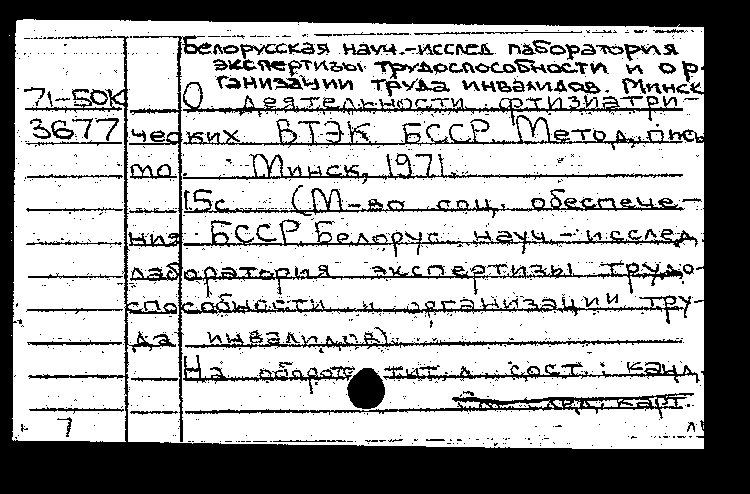 Белорусская науч.-исслед лаборатория
экспертизы трудоспособности и ор-
ганизации труда инвалидов. Минск
71-БОК О деятельности фтизиатри-
3677 ческих ВТЭК БССР. Метод. пись
мо. Минск, 1971.
15с (М-во соц. обеспече-
ния БССР. Белорус. науч-исслед.
лаборатория экспертизы трудо-
способности и организации тру-
да инвалидов).
На обороте тит. л. сост.: канд.
См. след. карт.
7